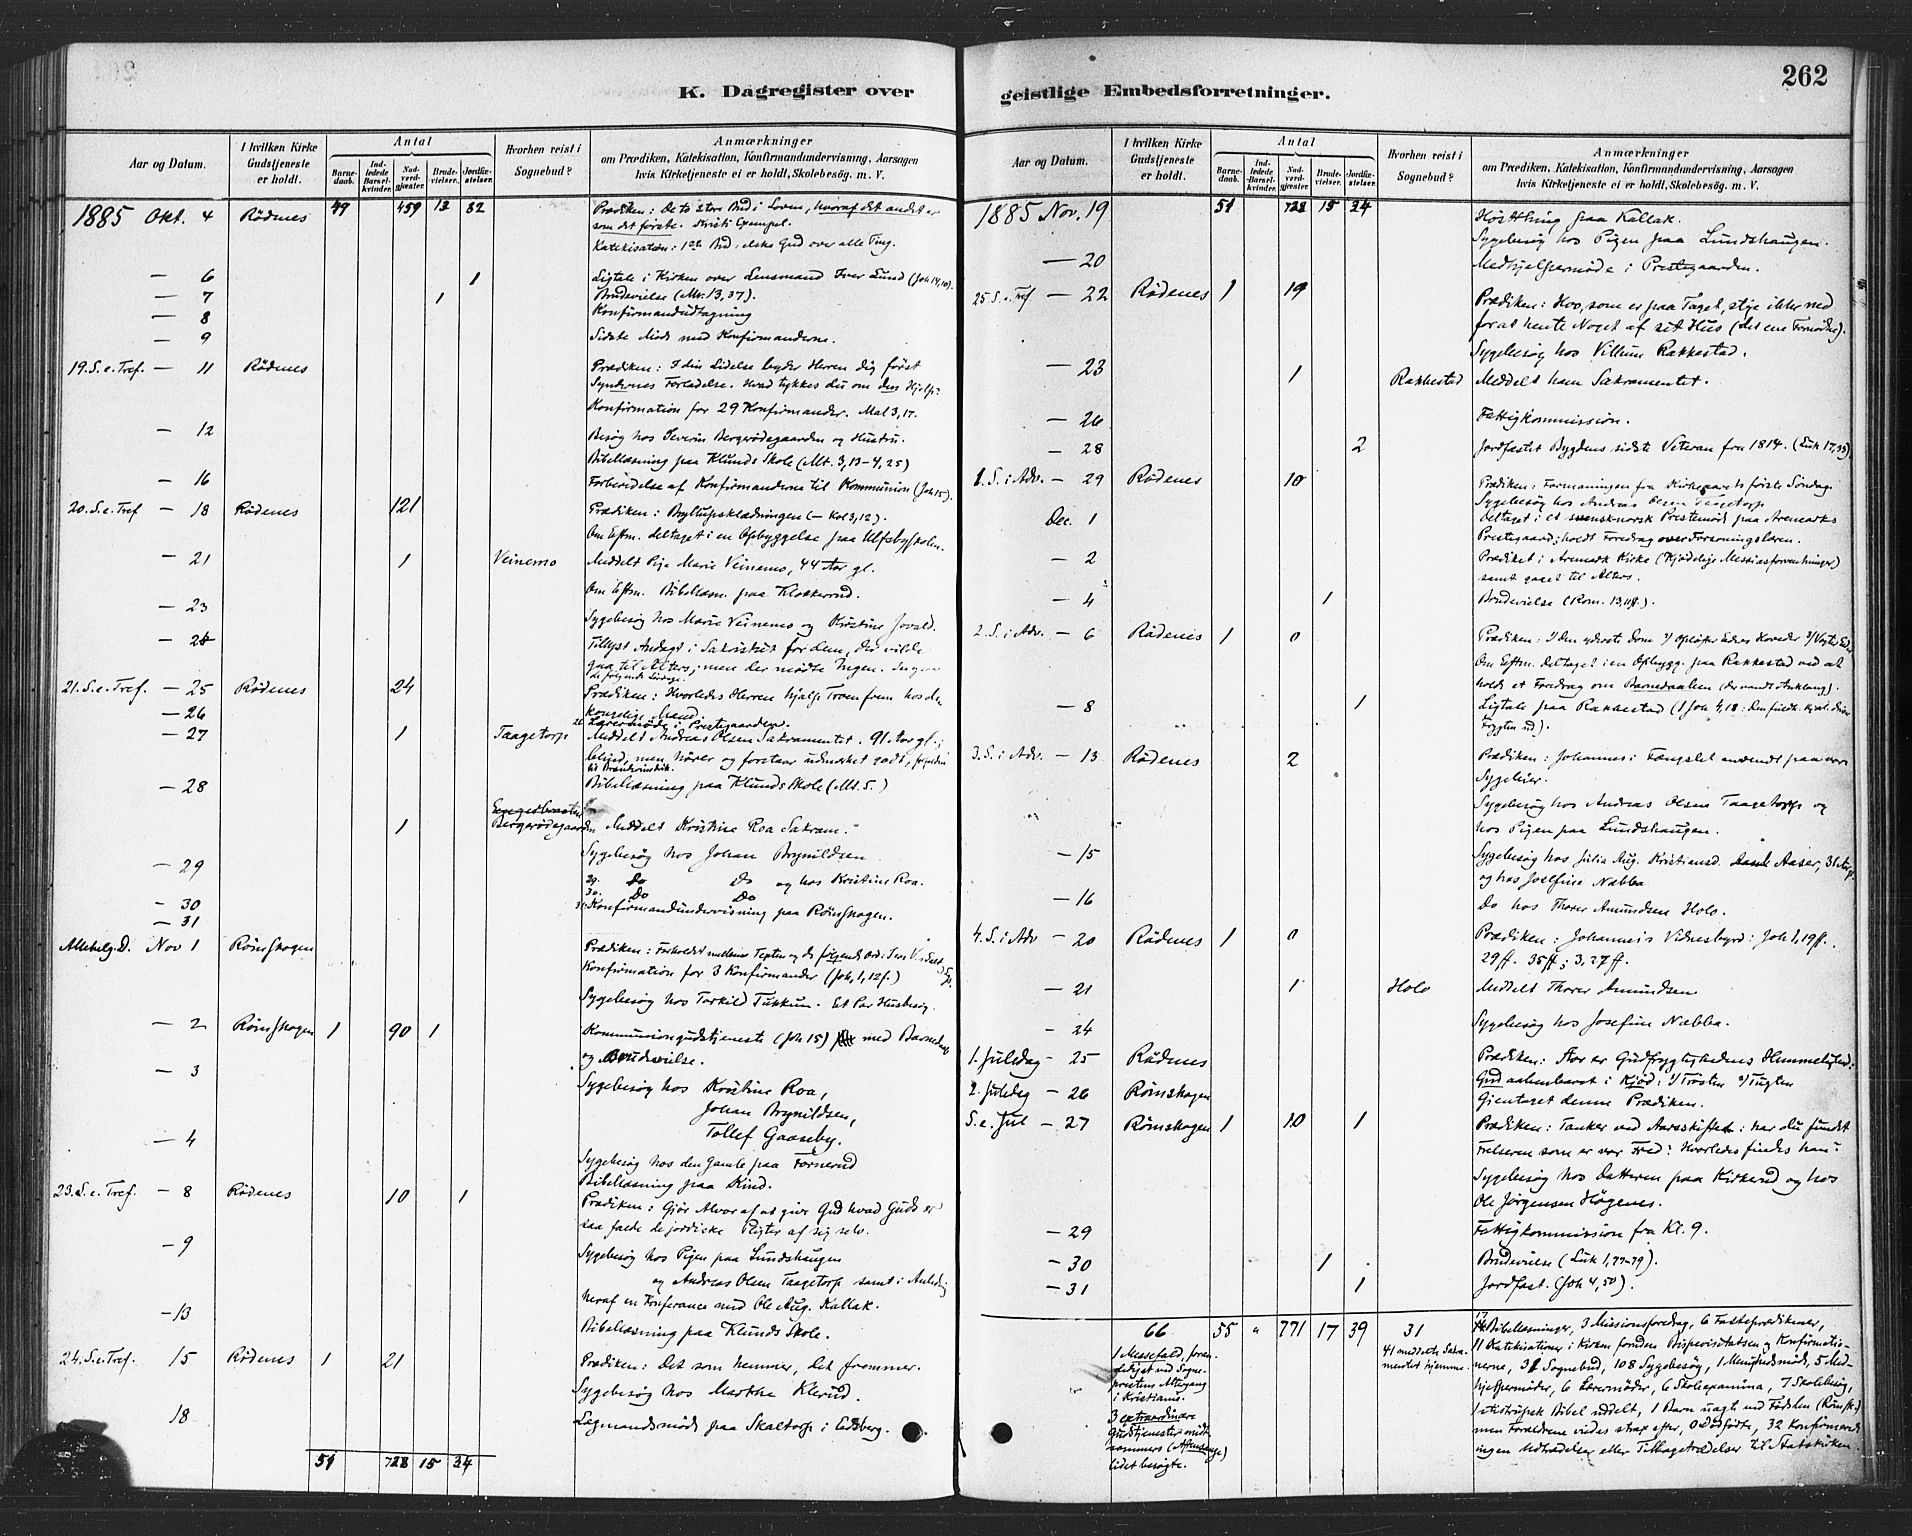 262
K. Dagregister over
geistlige Embedsforretninger.
Aar og Datum.
I hvilken Kirke Gudstjeneste er holdt.
Antal
Barnedaab.
Indledede Barselkvinder.
Nadverdgjæster.
Brudevielser.
Jordfæstelser.
Hvorhen reist i Sognebud?
Anmærkninger
om Prædiken, Katekisation, Konfirmandundervisning, Aarsagen
hvis Kirketjeneste ei er holdt, Skolebesøg. m. V.
1885 Okt. 4 Rödenes 49 459 13 32 Prædiken: De to store Bud i Loven, hvoraf det andet er
som det förste. Kristi Exempel.
Katekisation: 1ste Bud: elske Gud over alle Ting.
— 6 1 Ligtale i Kirken over Lensmand Iver Lund (Joh 14,10).
— 7 1 Brudevielse (Mr. 13,37).
— 8 Konfirmandudtagning
— 9 Sidste Möde med Konfirmanderne.
19. S. e. Tref. — 11 Rödenes Prædiken: I din Lidelse byder Herren dig först
Syndernes Forladelse. Hvad tykkes du om den Hjelp?
Konfirmation for 29 Konfirmander. Mal 3,17.
— 12 Besög hos Severin Bergerödegaarden og Hustru.
Bibellæsning paa Klunds Skole (Mt. 3,13-4,25)
— 16 Forberedelse af Konfirmanderne til Kommunion (Joh 15).
20. S. e. Tref — 18 Rödenes 121 Prædiken: Bryllupsklædningen (— Kol 3,12).
Om Eftm. deltaget i en Opbyggelse paa Ulfsbyskolen.
— 21 1 Veinemo Meddelt Pige Marie Veinemo, 44 Aar gl.
Om Eftm. Bibellæsn. paa Klokkerud.
— 23 Sygebesög hos Marie Veinemo og Kristine
Tillyst Andagt i Sakristiet for dem, der vilde
gaa til Alters; men der mödte Ingen.
de fölgende Lördage.
21. S. e. Tref. — 25 Rödenes 24 Prædiken: Hvorledes Herren hjalp Troen frem hos den
kongelige Mand.
— 26 Lærermöde i Prestegaarden.
— 27 1 Taagetorp Meddelt Andreas Olsen Sakramentet. 91 Aar gl.;
blind, men hörer og foretaar udmærket godt,
— 28 Bibellæsning paa Klunds Skole (Mt. 5.)
1 Bergerödegaarden Meddelt Kristine Roa Sakram.
Sygebesög hos Johan Brynildsen
— 29 29. Do Do og hos Kristine Roa.
— 30 30. Do Do
— 31 31. Konfirmandundervisning paa Römskogen.
Allehelg. D. Nov 1 Römskogen Prædiken: Forholdet mellem Texten og de fölgende Ord:
Konfirmation for 3 Konfirmander (Joh. 1,12 f.)
Sygebesög hos Torkild Tukkun. Et Par Husbesög.
— 2 Römskogen 1 90 1 Kommuniongudstjeneste (Joh 15) med Barnedaab
og Brudevielse.
— 3 Sygebesög hos Kristine Roa,
Johan Brynildsen,
Tollef Gaaseby.
— 4 Sygebesög hos den Gamle paa Fornerud
Bibellæsning paa Kind.
23. S. e. Tref. — 8 Rödenes 10 1 Prædiken: Gjör Alvor af at give Gud hvad Guds er
saa falde de jordiske Pligter af sig selv.
— 9 Sygebesög hos Pigen paa Lundshaugen
og Andreas Olsen Taagetorp samt i Anledning
heraf en Konferance med Ole Aug. Kallak.
— 13 Bibellæsning paa Klunds Skole.
24. S. e. Tref. 15 Rödenes 1 21 Prædiken: Det som hemmer, det frommer.
Sygebesög hos Marthe Klerud.
18 Lagmandsmöde paa Skaltorp i Eidsberg.
51 728 15 34
Aar og Datum.
I hvilken Kirke Gudstjeneste er holdt.
Antal
Barnedaab.
Indledede Barselkvinder.
Nadverdgjæster.
Brudevielser.
Jordfæstelser.
Hvorhen reist i Sognebud?
Anmærkninger
om Prædiken, Katekisation, Konfirmandundervisning, Aarsagen
hvis Kirketjeneste ei er holdt, Skolebesøg. m. V.
1885 Nov. 19 51 728 15 34 Höstthing paa Kallak.
Sygebesög hos Pigen paa Lundshaugen.
— 20 Medhjelpermöde i Prestegaarden.
25. S. e. Tref — 22 Rödenes 1 19 Prædiken: Hvo, som er paa Taget, stige ikke ned
for at hente Noget af sit Hus (det ene Fornödne).
Sygebesög hos Vilhum Rakkestad.
— 23 1 Rakkestad Meddelt ham Sakramentet.
— 26 Fattigkommission.
— 28 2 Jordfæstet Bygdens sidste Veteran fra 1814. (Luk 17,33)
1. S. i Adv. — 29 Rödenes 10 Prædiken: Formaningen fra Kirkeaarets förste Söndag.
Sygebesög hos Andreas Olsen Taagetorp
Dec. 1 Deltaget i et svensk-norsk Prestemöde paa Aremarks
Prestegaard; holdt Foredrag over Forsoningslæren.
— 2 Prædiket i Aremark Kirke (Kjödelige Messiasforventninger)
samt gaaet til Alters.
— 4 1 Brudevielse (Rom. 13,11 ff.).
2. S. i Adv. — 6 Rödenes 1 0 Prædiken: 1/ Den yderste Dom 2/ Oplöfter Eders Hoveder 3/ Vogter Eder
Om Eftm. deltaget i en Opbygg. paa Rakkestad ved at
holde et Foredrag om Barnedaaben (der vandt Anklang).
— 8 1 Ligtale paa Rakkestad (1 Joh 4,18: Den fuldk. Kjærl. driver
Frygten ud).
3. S. i Adv. — 13 Rödenes 2 Prædiken: Johannes i Fængslet anvendt paa vore
Sygeleier.
Sygebesög hos Andreas Olsen Taagetorp og
hos Pigen paa Lundshaugen.
— 15 Sygebesög hos Julia Aug. Kristiansd. Aaser, 31 Aar
og hos Josefine Næbba
— 16 Do hos Thorer Amundsen Holo.
4. S. i Adv — 20 Rödenes 1 0 Prædiken: Johannes's Vidnesbyrd: Joh 1,19 ff.
29 ff. 35 ff; 3,27 ff.
— 21 1 Holo Meddelt Thorer Amundsen
— 24 Sygebesög hos Josefine Næbba.
1. Juledag — 25 Rödenes Prædiken: Stor er Gudfrygtighedens Hemmelighed:
Gud aabenbaret i Kjöd: 1/ Trösten 2/ Tugten
2. Juledag — 26 Römskogen Gjentaget denne Prædiken.
S. e. Jul — 27 Römskogen 1 10 1 Prædiken: Tanker ved Aarsskiftet: har du fundet
Frelseren som er vor Fred? Hvorledes findes han?
Sygebesög hos Datteren paa Kirkerud og hos
Ole Jörgensen Högenes.
— 29 Fattigkommission fra Kl. 9.
— 30 1 Brudevielse (Luk 1,77-79).
— 31 1 Jordfæst. (Joh 4,50).
66 55 " 771 17 39 31
1 Messefald, foranlediget ved Sogneprestens Altergang i Kristiania.
3 extraordinære Gudstjenester midtsommers (Aftensange) lidet besögte.
41 meddelte Sakramentet hjemme.
Bibellæsninger, 3 Missionsforedrag, 6 Fasteprædikener,
11 Katekisationer i Kirken foruden Bispevisitatsen og Konfirmationerne,
31 Sognebud, 108 Sygebesög, 1 Menighedsmöde, 5 Medhjelpermöder,
6 Lærermöder, 6 Skoleexamina, 7 Skolebesög,
1 Bibel uddelt, 1 Barn uægte ved Födslen (Römsk.)
men Forældrene viedes strax efter, 0 Dödfödte, 32 Konfirmerede
ingen Udtrædelser eller Tilbagetrædelser til Statskirken